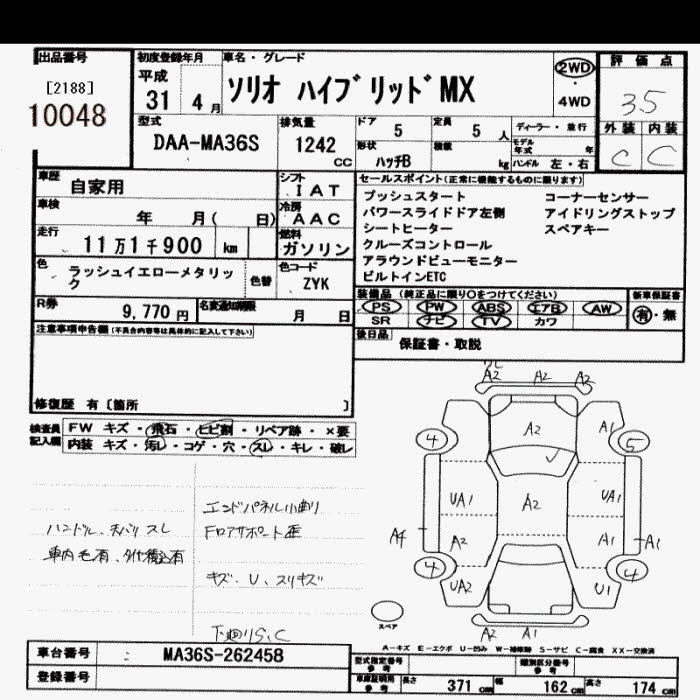 出品番号
[2188]
10048
初度登録年月
平成
31 4 月
車名・グレード
ソリオ ハイブリッドMX
2WD
・
4WD
評価点
3.5
型式
DAA-MA36S
排気量
1242
CC
ドア
5
定員
5 人
形状
ハッチB
積載
kg
ディーラー・並行
モデル年式
年
ハンドル 左・右
外装 内装
C C
車歴
自家用
シフト
IAT
車検
年 月( 日)
冷房
AAC
走行
11万1千900 km
燃料
ガソリン
色
ラッシュイエローメタリック
色替
色コード
ZYK
R券
9,770 円
名変通知期限
月 日
セールスポイント(正常に機能するものに限ります)
プッシュスタート コーナーセンサー
パワースライドドア左側 アイドリングストップ
シートヒーター スペアキー
クルーズコントロール
アラウンドビューモニター
ビルトインETC
装備品(純正品に限り○をつけてください)
PS PW ABS エアB AW
SR ナビ TV カワ
新車保証書
有・無
後日品
保証書・取説
注意事項申告欄(不具合内容等は具体的に記入して下さい)
修復歴 有[箇所 ]
検査員
記入欄
FW キズ・飛石・ヒビ割・リペア跡・×要
内装 キズ・汚レ・コゲ・穴・スレ・キレ・破レ
ハンドル、
スレ
車内毛有、
エンドパネル小曲り
Fロアサポート歪
キズ、U、スリキズ
下廻りS,C
A2 A2 A2
4 A2 A1 5
UA1 A2 UA1
A4 A2 A1 A1
4 UA2 U1 4
A2 A1
スペア
A-キズ E-エクボ U-凹み W-補修跡 S-サビ C-腐食 XX-交換済
車台番号
MA36S-262458
登録番号
型式指定番号
参考
類別区分番号
参考
車庫証明用
参考
長さ 371 cm 幅 162 cm 高さ 174 cm